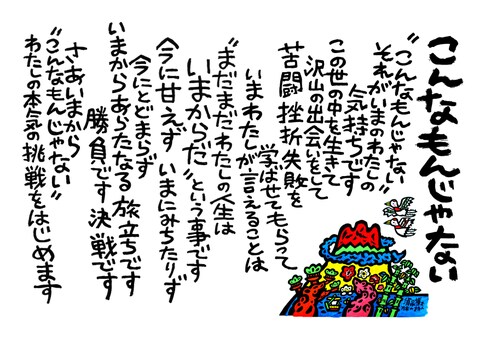 こんなもんじゃない
〝こんなもんじゃない
それがいまのわたしの〟
気持ちです
この世の中を生きて
沢山の出会いをして
苦闘挫折失敗を
学ばせてもらって
いまわたしが言えることは
〝まだまだわたしの人生は
いまからだ〟という事です
今に甘えず いまにみちたりず
今にとどまらず
いまからあらたなる旅立ちです
勝負です決戦です
さあいまから
〝こんなもんじゃない〟
わたしの本気の挑戦をはじめます